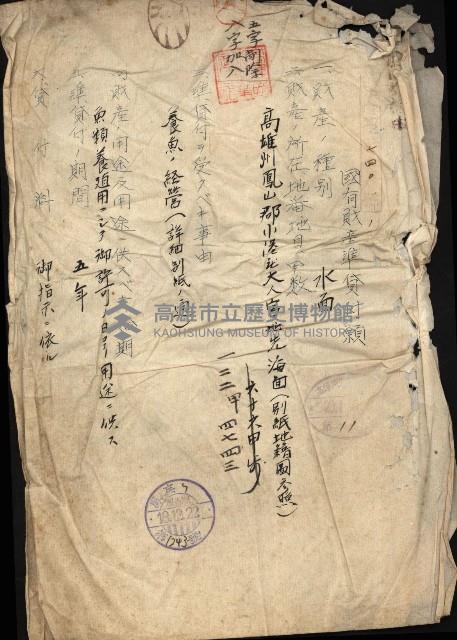 國有財産準貸付願
一財産ノ種別
水面
一財産ノ所在地番地目甲数
高雄州鳳山郡小港庄大人宮地先海面(別紙地籍図参照)
六十六甲歩
一二二甲四七四三
準貸付ヲ受クベキ事由
養魚ノ経営(詳細別紙ノ通)
財産ノ用途及用途ニ供スベキ期
魚類養殖用ニシテ御許可ノ日ヨリ用途ニ供ス
準貸付ノ期間
五年
貸付料
御指示ニ依ル
五字削除
八字加入
高雄市立歷史博物館
KAOHSIUNG MUSEUM OF HISTORY
13.12.22
1243
11